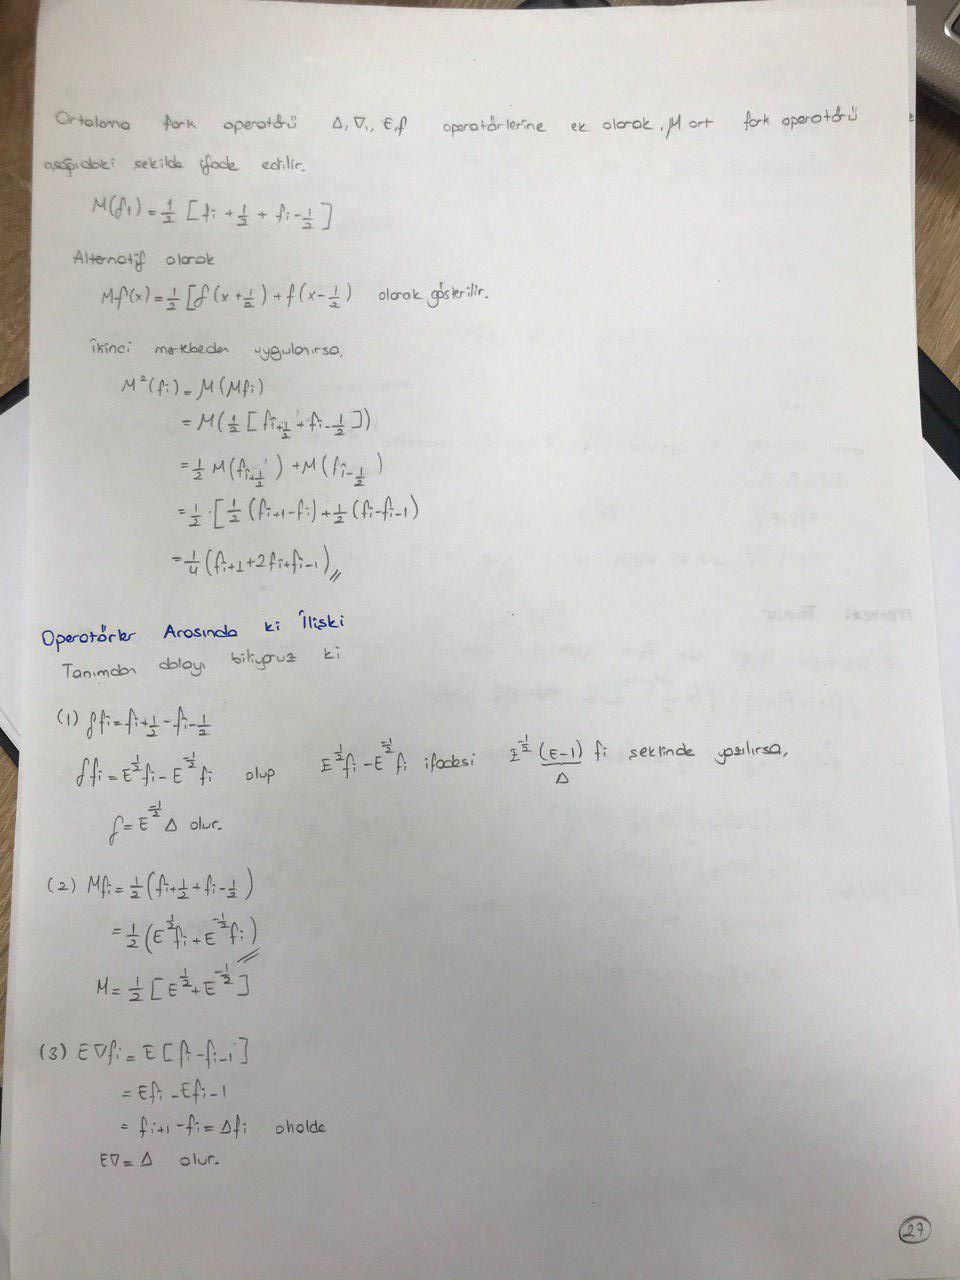 Ortalama fark operatörü Δ, ∇, E, δ operatörlerine ek olarak, M ort fark operatörü
aşağıdaki şekilde ifade edilir.
M(f1) = 1/2 [fi + 1/2 + fi - 1/2]
Alternatif olarak
Mf(x) = 1/2 [f(x + 1/2) + f(x - 1/2) olarak gösterilir.
İkinci mertebeden uygulanırsa,
M²(fi) = M(Mfi)
= M(1/2 [fi+1/2 + fi-1/2])
= 1/2 M(fi+1/2) + M(fi-1/2)
= 1/2 · [1/2 (fi+1 - fi) + 1/2 (fi - fi-1)
= 1/4 (fi+1 + 2fi + fi-1) //
Operatörler Arasında ki İlişki
Tanımdan dolayı biliyoruz ki
(1) δfi = fi+1/2 - fi-1/2
δfi = E^1/2 fi - E^-1/2 fi olup E^1/2 fi - E^-1/2 fi ifadesi E^-1/2 (E-1) fi şeklinde yazılırsa,
Δ
δ = E^-1/2 Δ olur.
(2) Mfi = 1/2 (fi+1/2 + fi-1/2)
= 1/2 (E^1/2 fi + E^-1/2 fi) //
M = 1/2 [E^1/2 + E^-1/2]
(3) E∇fi = E[fi - fi-1]
= Efi - Efi-1
= fi+1 - fi = Δfi ohalde
E∇ = Δ olur.
27